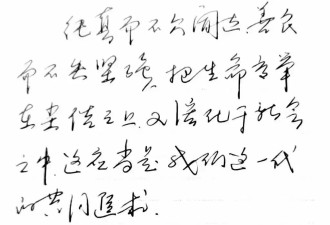 纯真而不欠闻达，善良
而不失坚强，把生命高举
在尘俗之上，又潜化于社会
之中，这应当是我们这一代
的共同追求。